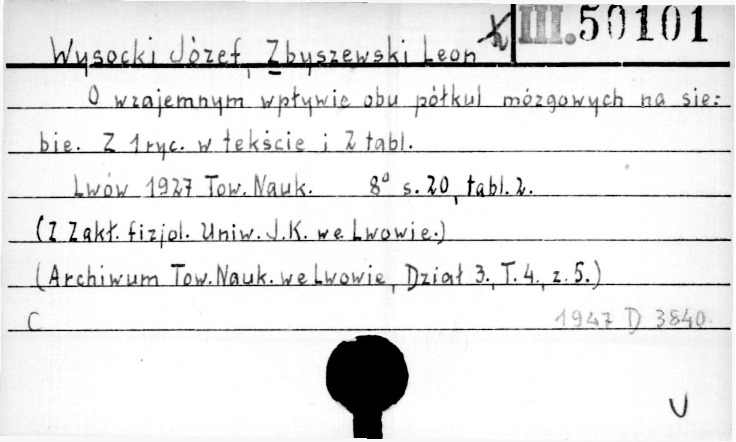 III.50101
Wysocki Józef, Zbyszewski Leon
O wzajemnym wpływie obu półkul mózgowych na sie=
bie. Z 1 ryc. w tekście i 2 tabl.
Lwów 1927 Tow. Nauk. 8° s. 20, tabl. 2.
(Z Zakł. fizjol. Uniw. J.K. we Lwowie.)
(Archiwum Tow. Nauk. we Lwowie, Dział 3., T. 4., z. 5.)
C 1947 D 3840.
U